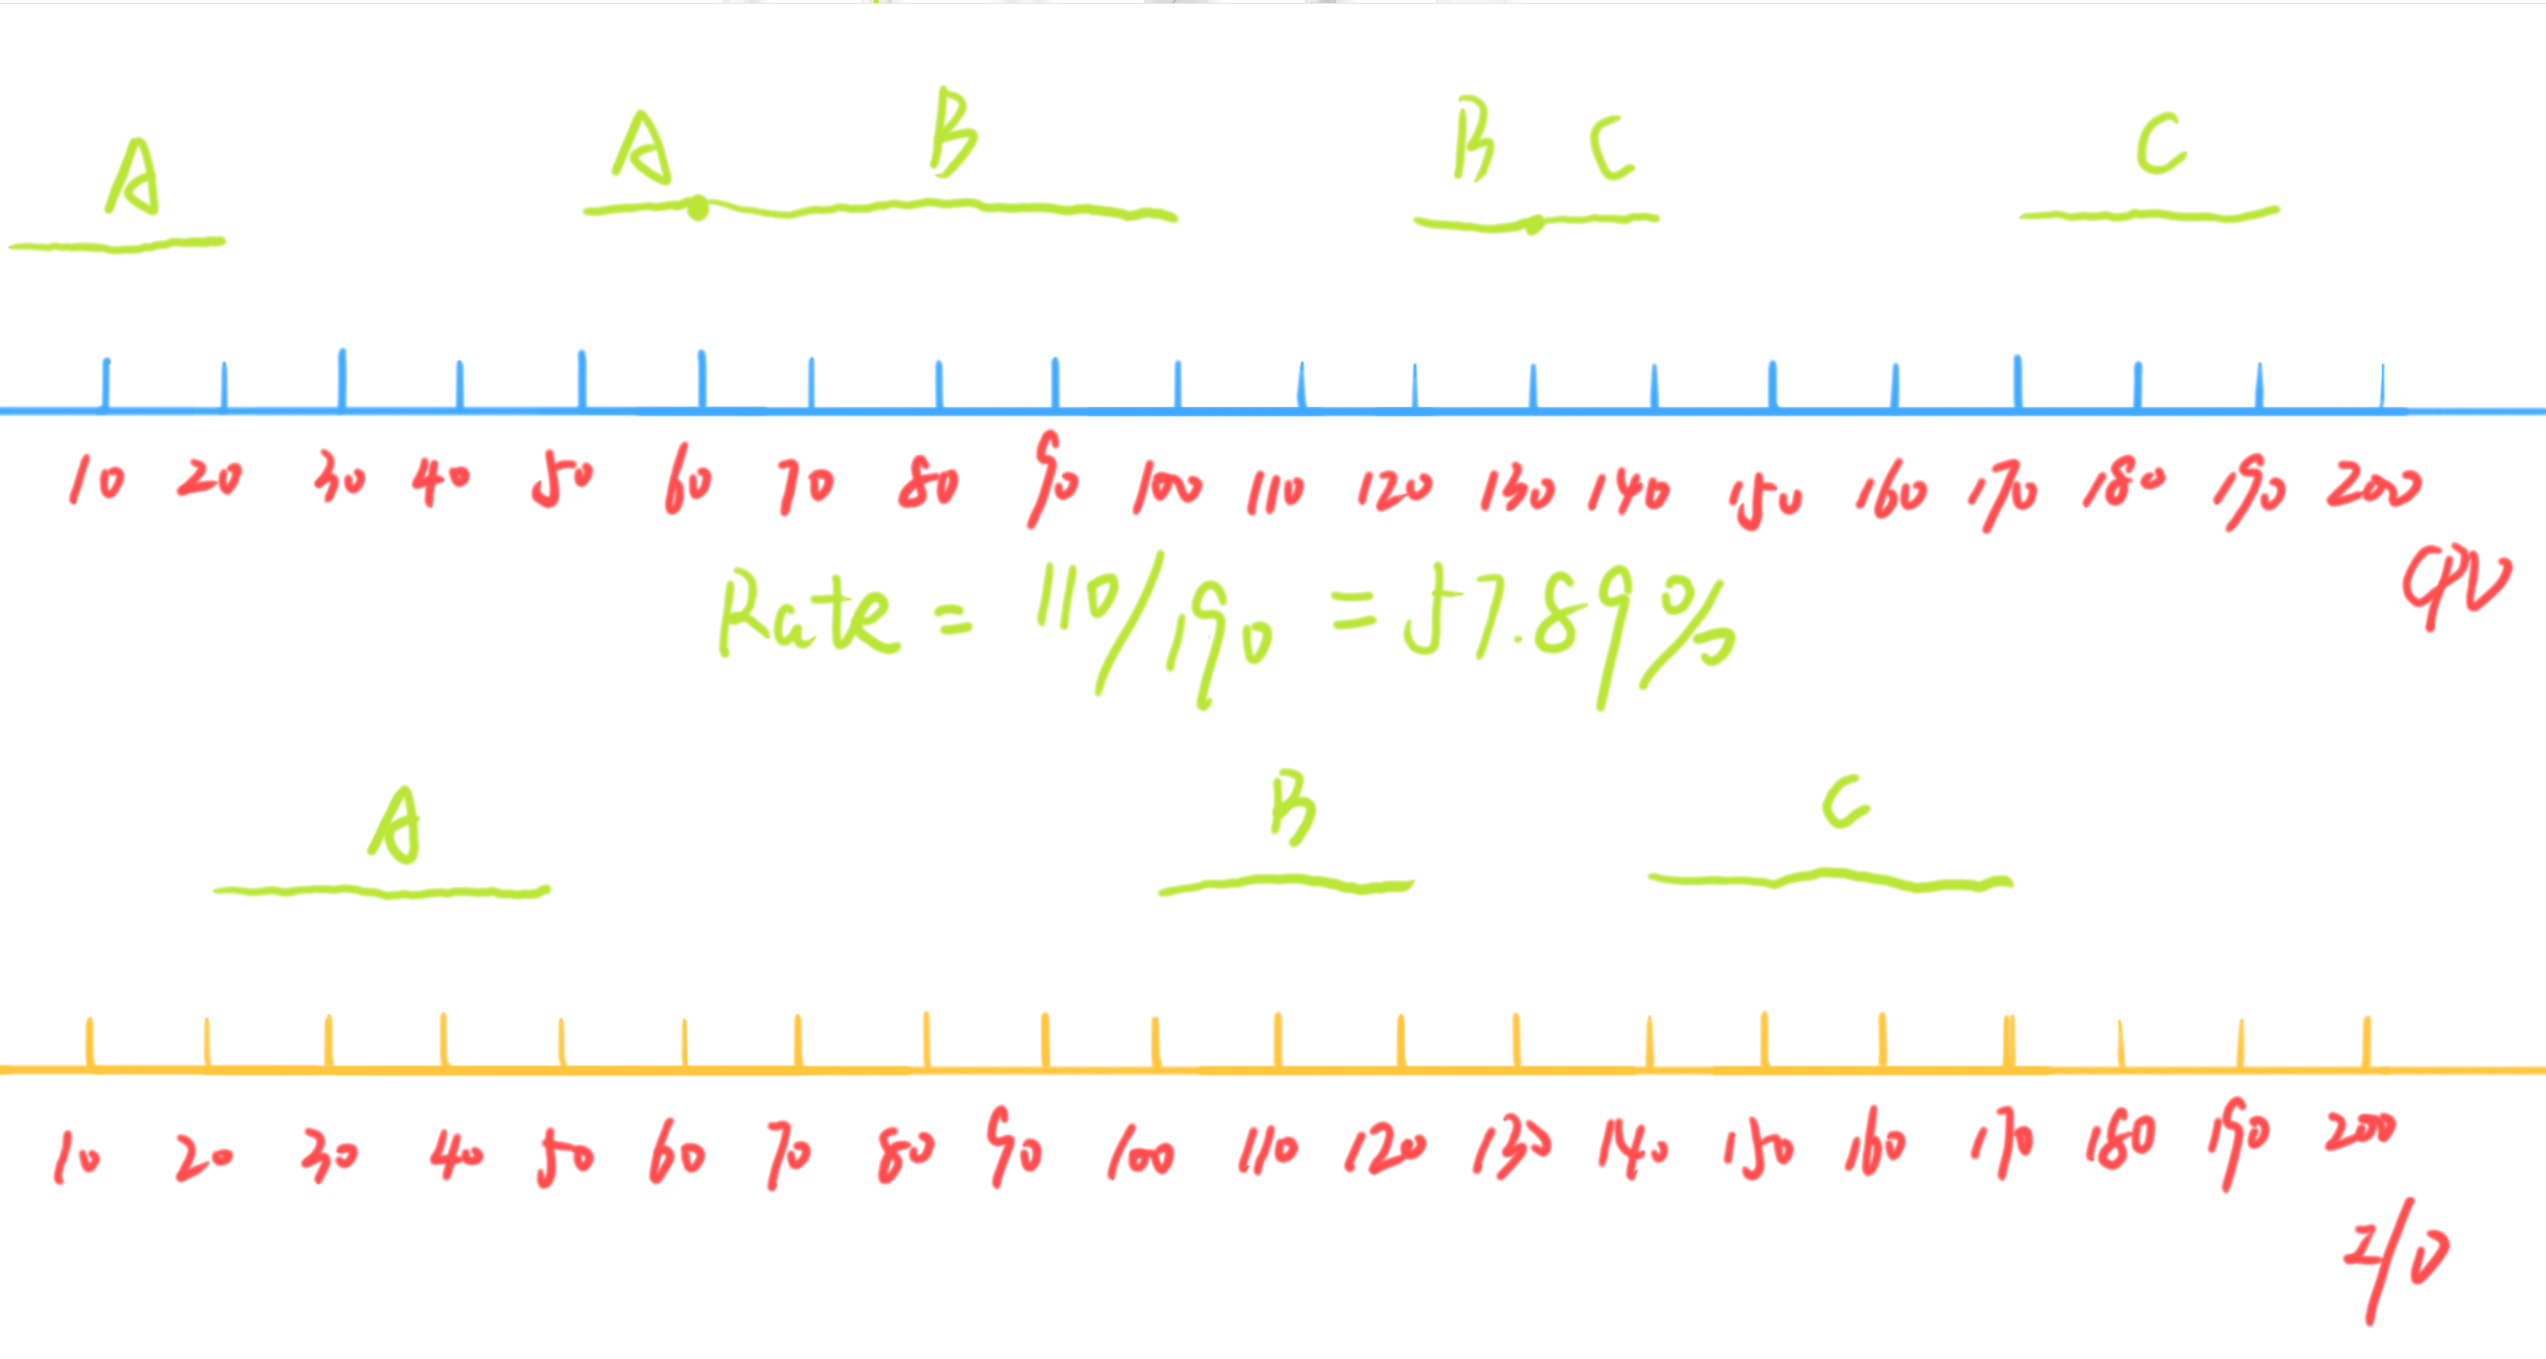 A A B B C C
10 20 30 40 50 60 70 80 90 100 110 120 130 140 150 160 170 180 190 200
CPU
Rate = 110/190 = 57.89%
A B C
10 20 30 40 50 60 70 80 90 100 110 120 130 140 150 160 170 180 190 200
I/O